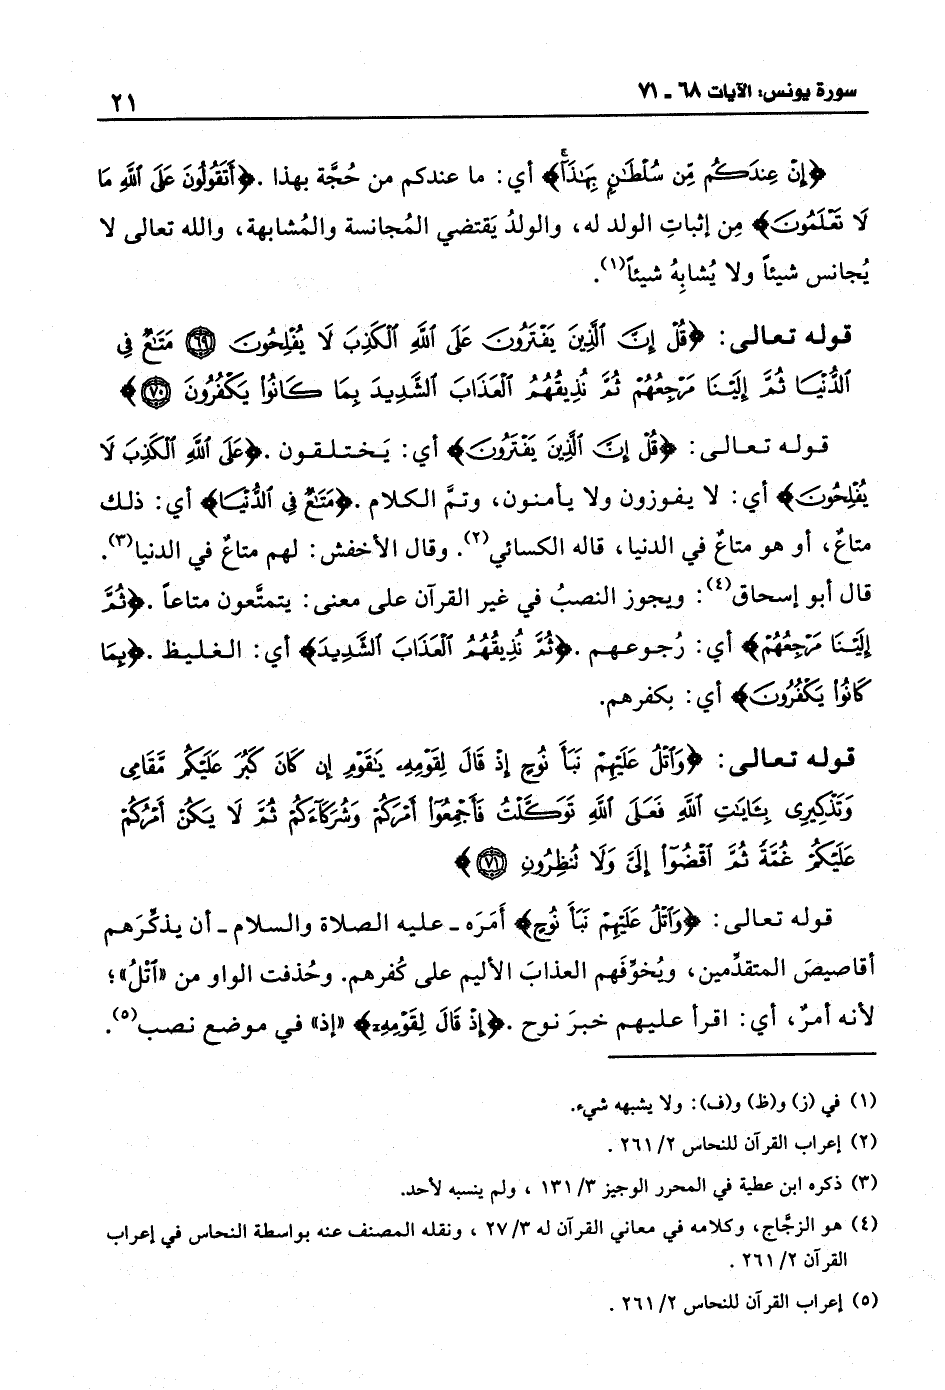 سورة يونس: الآيات ٦٨ ـ ٧١
٢١
﴿إِنْ عِندَكُم مِّن سُلْطَٰنٍۭ بِهَٰذَآ﴾ أي: ما عندكم من حُجَّة بهذا. ﴿أَتَقُولُونَ عَلَى ٱللَّهِ مَا
لَا تَعْلَمُونَ﴾ مِن إثباتِ الولد له، والولدُ يَقتضي المُجانسة والمُشابهة، والله تعالى لا
يُجانس شيئاً ولا يُشابِهُ شيئاً(١).
قوله تعالى: ﴿قُلْ إِنَّ ٱلَّذِينَ يَفْتَرُونَ عَلَى ٱللَّهِ ٱلْكَذِبَ لَا يُفْلِحُونَ ٦٩ مَتَٰعٌ فِى
ٱلدُّنْيَا ثُمَّ إِلَيْنَا مَرْجِعُهُمْ ثُمَّ نُذِيقُهُمُ ٱلْعَذَابَ ٱلشَّدِيدَ بِمَا كَانُوا۟ يَكْفُرُونَ ٧٠﴾
قوله تعالى: ﴿قُلْ إِنَّ ٱلَّذِينَ يَفْتَرُونَ﴾ أي: يَختلقون. ﴿عَلَى ٱللَّهِ ٱلْكَذِبَ لَا
يُفْلِحُونَ﴾ أي: لا يفوزون ولا يأمنون، وتمَّ الكلام. ﴿مَتَٰعٌ فِى ٱلدُّنْيَا﴾ أي: ذلك
متاعٌ، أو هو متاعٌ في الدنيا، قاله الكسائي(٢). وقال الأخفش: لهم متاعٌ في الدنيا(٣).
قال أبو إسحاق(٤): ويجوز النصبُ في غير القرآن على معنى: يتمتَّعون متاعاً. ﴿ثُمَّ
إِلَيْنَا مَرْجِعُهُمْ﴾ أي: رُجوعهم. ﴿ثُمَّ نُذِيقُهُمُ ٱلْعَذَابَ ٱلشَّدِيدَ﴾ أي: الغليظ. ﴿بِمَا
كَانُوا۟ يَكْفُرُونَ﴾ أي: بكفرهم.
قوله تعالى: ﴿وَٱتْلُ عَلَيْهِمْ نَبَأَ نُوحٍ إِذْ قَالَ لِقَوْمِهِۦ يَٰقَوْمِ إِن كَانَ كَبُرَ عَلَيْكُم مَّقَامِى
وَتَذْكِيرِى بِـَٔايَٰتِ ٱللَّهِ فَعَلَى ٱللَّهِ تَوَكَّلْتُ فَأَجْمِعُوٓا۟ أَمْرَكُمْ وَشُرَكَآءَكُمْ ثُمَّ لَا يَكُنْ أَمْرُكُمْ
عَلَيْكُمْ غُمَّةً ثُمَّ ٱقْضُوٓا۟ إِلَىَّ وَلَا تُنظِرُونِ ٧١﴾
قوله تعالى: ﴿وَٱتْلُ عَلَيْهِمْ نَبَأَ نُوحٍ﴾ أَمَرَه ـ عليه الصلاة والسلام ـ أن يذكِّرَهم
أقاصيصَ المتقدِّمين، ويُخوِّفَهم العذابَ الأليم على كُفرهم. وحُذفت الواو من «اتْلُ»؛
لأنه أمرٌ، أي: اقرأ عليهم خبرَ نوح. ﴿إِذْ قَالَ لِقَوْمِهِۦ﴾ «إذ» في موضع نصب(٥).
(١) في (ز) و(ظ) و(ف): ولا يشبهه شيء.
(٢) إعراب القرآن للنحاس ٢/ ٢٦١ .
(٣) ذكره ابن عطية في المحرر الوجيز ٣/ ١٣١ ، ولم ينسبه لأحد.
(٤) هو الزجَّاج، وكلامه في معاني القرآن له ٣/ ٢٧ ، ونقله المصنف عنه بواسطة النحاس في إعراب
القرآن ٢/ ٢٦١ .
(٥) إعراب القرآن للنحاس ٢/ ٢٦١ .